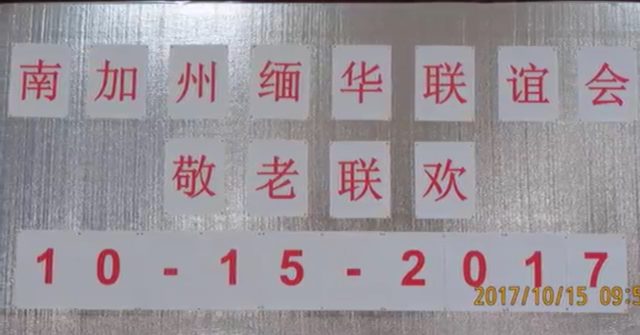 南加州缅华联谊会
敬老联欢
10-15-2017
2017/10/15 09:5